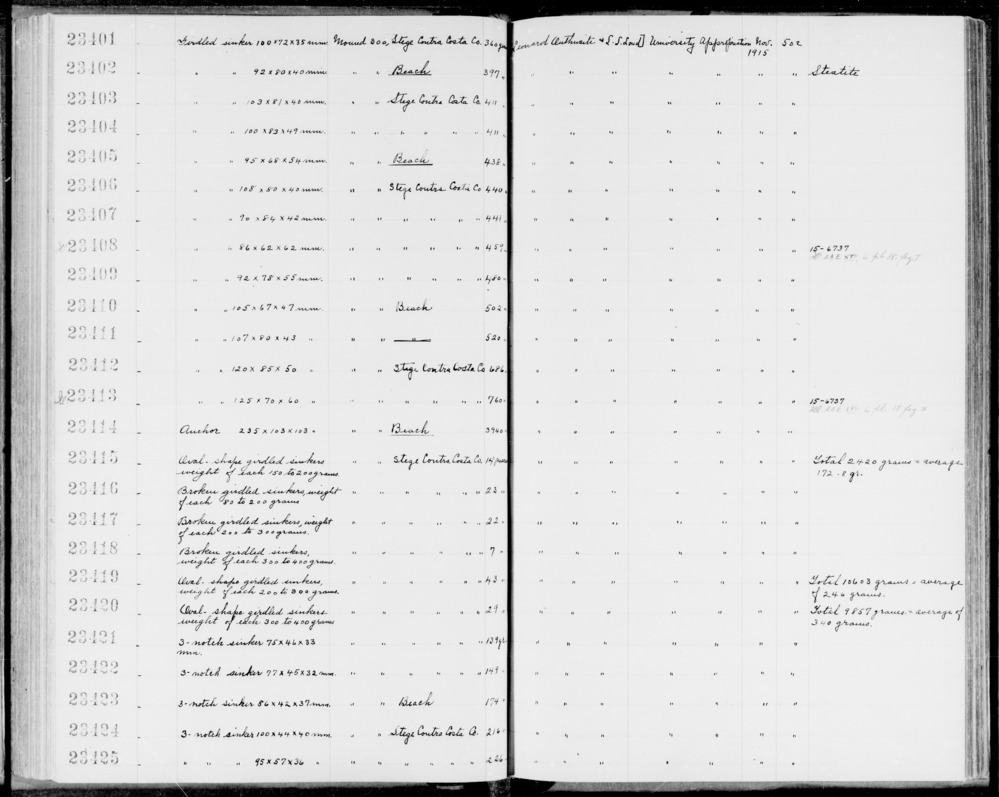 23401 Girdled sinker 100x72x35 mm. Mound 300, Stege Contra Costa Co. 360 gms Leonard Outhwaite & S. S. Loud] University Appropriation Nov. 1915 502
23402 " " 92x80x40 mm " " Beach 397 " " " " " " " " Steatite
23403 " " 103x81x40 mm. " " Stege Contra Costa Co 411 " " " " " " " "
23404 " " 100x83x49 mm. " " " " " " 411 " " " " " " " "
23405 " " 95x68x54 mm. " " Beach 438 " " " " " " " "
23406 " " 108x80x40 mm. " " Stege Contra Costa Co 440 " " " " " " " "
23407 " " 90x84x42 mm. " " " " " " 441 " " " " " " " "
23408 " " 86x62x62 mm. " " " " " " 459 " " " " " " " " 15-6737
23409 " " 92x78x55 mm. " " " " " " 480 " " " " " " " "
23410 " " 105x67x47 mm. " " Beach 502 " " " " " " " "
23411 " " 107x80x43 " " " —"— 520 " " " " " " " "
23412 " " 120x85x50 " " " Stege Contra Costa Co 686 " " " " " " " "
23413 " " 125x70x60 " " " " " " " 760 " " " " " " " " 15-6737
23414 Anchor 235x103x103 " " " Beach 3940 " " " " " " " "
23415 Oval-shape girdled sinkers " " Stege Contra Costa Co. 14 " " " " " " " Total 2420 grams = average
weight of each 150 to 200 grams 172.8 gr.
23416 Broken girdled sinkers, weight " " " " " " 23 " " " " " " " "
of each 80 to 200 grams
23417 Broken girdled sinkers, weight " " " " " " 22 " " " " " " " "
of each 200 to 300 grams.
23418 Broken girdled sinkers, " " " " " " 7 " " " " " " " "
weight of each 300 to 400 grams.
23419 Oval-shape girdled sinkers, " " " " " " 43 " " " " " " " " Total 10603 grams = average
weight of each 200 to 300 grams. of 246 grams.
23420 Oval-shape girdled sinkers " " " " " " 29 " " " " " " " " Total 9857 grams = average of
weight of each 300 to 400 grams 340 grams.
23421 3-notch sinker 75x46x33 " " " " " " 139 gr " " " " " " "
mm.
23422 3-notch sinker 77x45x32 mm. " " " " " " 149 " " " " " " " "
23423 3-notch sinker 86x42x37 mm. " " Beach 174 " " " " " " " "
23424 3-notch sinker 100x44x40 mm " " Stege Contra Costa Co. 216 " " " " " " " "
23425 " " " 95x57x36 " " " " " " " 226 " " " " " " " "